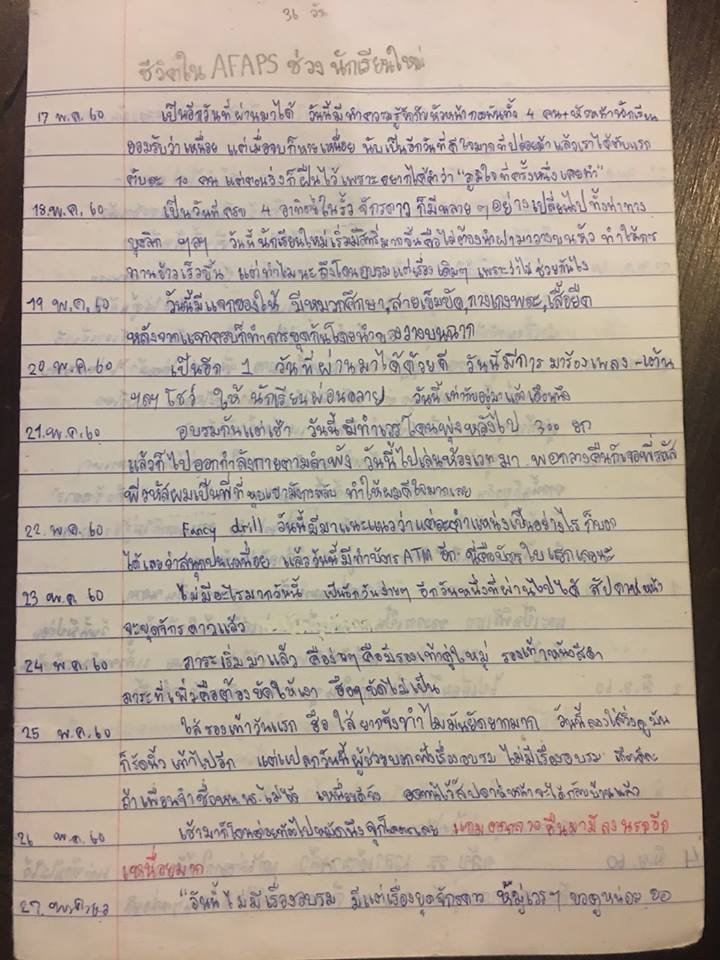 36 วัน
ชีวิตใน AFAPS ช่วง นักเรียนใหม่
17 พ.ค. 60 เป็นอีกวันที่ผ่านมาได้ วันนี้มีทำความรู้จักกับหัวหน้ากองพันทั้ง 4 คน+หัวหน้านักเรียน
ยอมรับว่าเหนื่อย แต่เมื่อจบก็หายเหนื่อย นับเป็นอีกวันที่ดีใจมากที่ปล่อยม้า แล้วเราได้กับแรก
กับละ 10 คน แต่ตอนวิ่งก็ฝืนไว้เพราะอยากได้คำว่า "ภูมิใจที่ครั้งหนึ่งเคยทำ"
18.พ.ค. 60 เป็นวันที่ครบ 4 อาทิตย์ในรั้วจักรดาว ก็มีหลาย ๆ อย่างเปลี่ยนไป ทั้งท่าทาง
บุคลิก ฯลฯ วันนี้นักเรียนใหม่เริ่มมีสิทธิ์มากขึ้นคือไม่ต้องนำฝามาวางบนหัว ทำให้การ
ทานข้าวเร็วขึ้น แต่ทำไมนะถึงโดนอบรมแต่เรื่องเดิมๆ เพราะว่าไม่ช่วยกันไง
19 พ.ค. 60 วันนี้มีแจกของให้ มีหมวกศึกษา, สายเข็มขัด, กางเกงพละ, เสื้อยืด
หลังจากแจกครบก็ทำการยุดกันโดยนำ วางบนฉาก
20 พ.ค. 60 เป็นอีก 1 วันที่ผ่านมาได้ด้วยดี วันนี้มีการมาร้องเพลง -เต้น
ฯลฯ โชว์ ให้นักเรียนผ่อนคลาย วันนี้เท่ากับอยู่มาแล้วเดือนนึง
21.พ.ค. 60 อบรมกันแต่เช้า วันนี้มีทำเวร โดนพุ่งหลังไป 300 ยก
แล้วก็ไปออกกำลังกายตามลำพัง วันนี้ไปเล่นห้องเวทมา พอกลางคืนก็เจอพี่รหัส
พี่รหัสผมเป็นพี่ที่ ครับ ทำให้ผมดีใจมากเลย
22. พ.ค. 60 Fancy drill วันนี้มีมาแนะแนวว่าแต่ละตำแหน่งเป็นอย่างไร ก็บอก
ได้เลยว่าสนุกปนเหนื่อย แล้ววันนี้มีทำบัตร ATM อีก นี่คือบัตรใบแรกเลยนะ
23 พ.ค. 60 ไม่มีอะไรมากวันนี้ เป็นอีกวันง่ายๆ อีกวันหนึ่งที่ผ่านไปได้ สัปดาห์หน้า
จะยุดจักรดาวแล้ว
24 พ.ค. 60 ภาระเริ่มมาแล้ว คือง่ายๆ คือมีรองเท้าคู่ใหม่ รองเท้าหนังสีดำ
ภาระที่เพิ่มคือต้องขัดให้เงา ซื่อๆขัดไม่เป็น
25 พ.ค. 60 ใส่รองเท้าวันแรก ซื่อ ใส่ยากจังทำไมมันยัดยากมาก วันนี้ลองใส่วิ่งดูมัน
ก็รัดนิ้วเท้าไปอีก แต่แปลกวันนี้ผู้ช่วยบอกไม่มีเรื่องอบรม ไม่มีเรื่องอบรม
ถ้าเพื่อนจำชื่อ ไม่ได้ เหนื่อยดีจัง อดทนไว้สัปดาห์หน้าจะได้กลับบ้านแล้ว
26 พ.ค. 60 เช้ามาก็โดน เลย แถม กลางคืนมามีลงนรกอีก
เหนื่อยมาก
27. พ.ค. 60 "วันนี้ไม่มีเรื่องอบรม มีแต่เรื่องยุดจักรดาว ให้ผู้เวรๆ ขอดูหน่อย ขอ